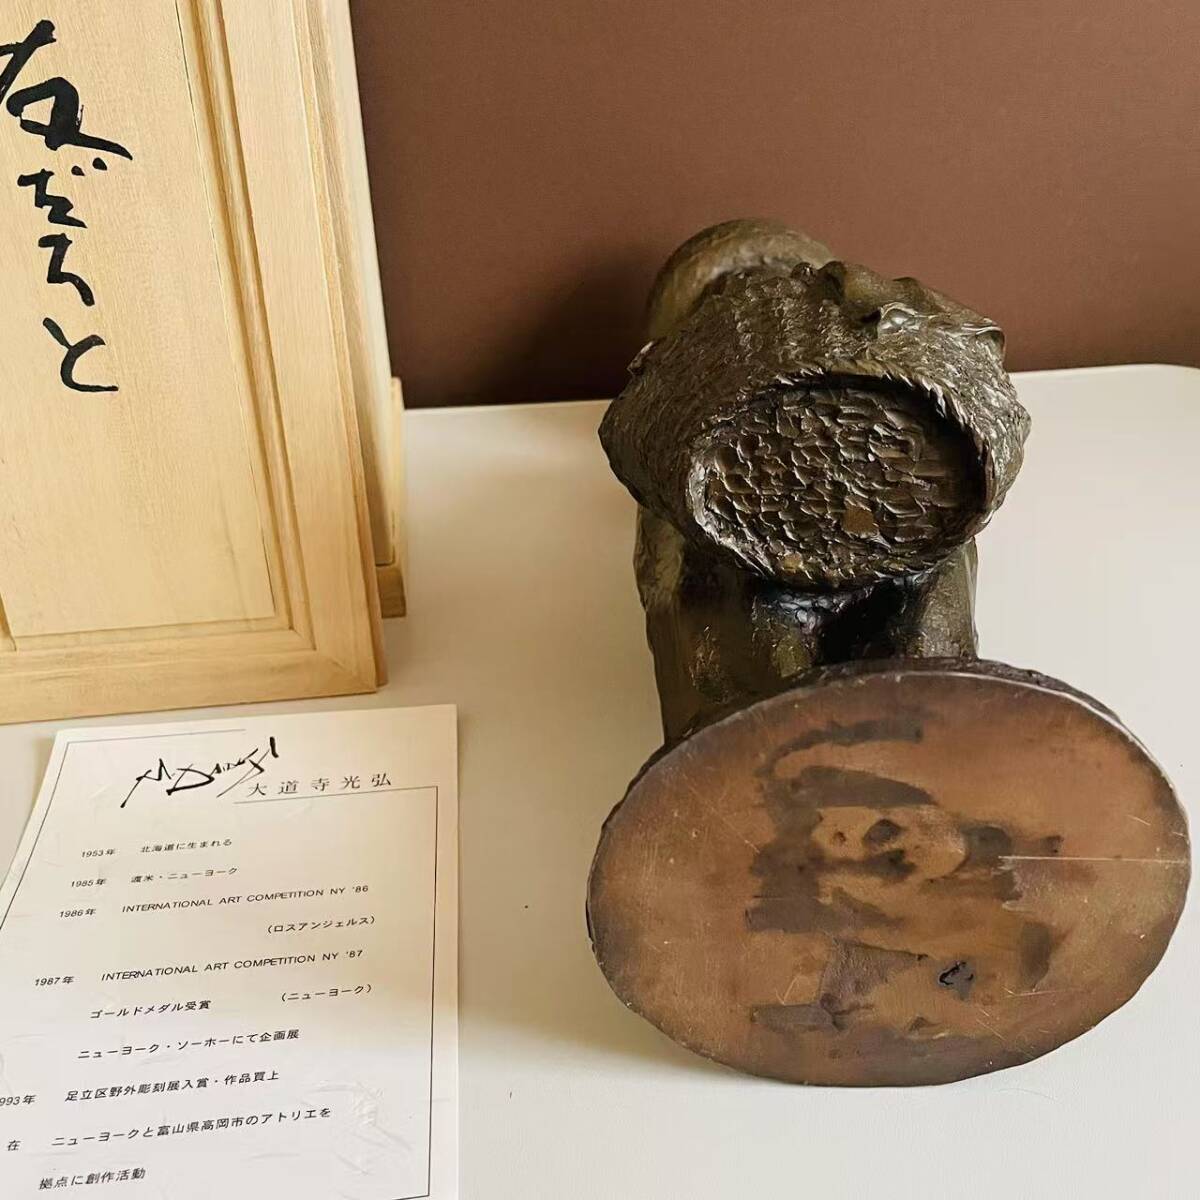 友だちと
M. DAIDOJI
大道寺光弘
1953年 北海道に生まれる
1985年 渡米・ニューヨーク
1986年 INTERNATIONAL ART COMPETITION NY '86
（ロスアンジェルス）
1987年 INTERNATIONAL ART COMPETITION NY '87
ゴールドメダル受賞 （ニューヨーク）
ニューヨーク・ソーホーにて企画展
993年 足立区野外彫刻展入賞・作品買上
在 ニューヨークと富山県高岡市のアトリエを
拠点に創作活動